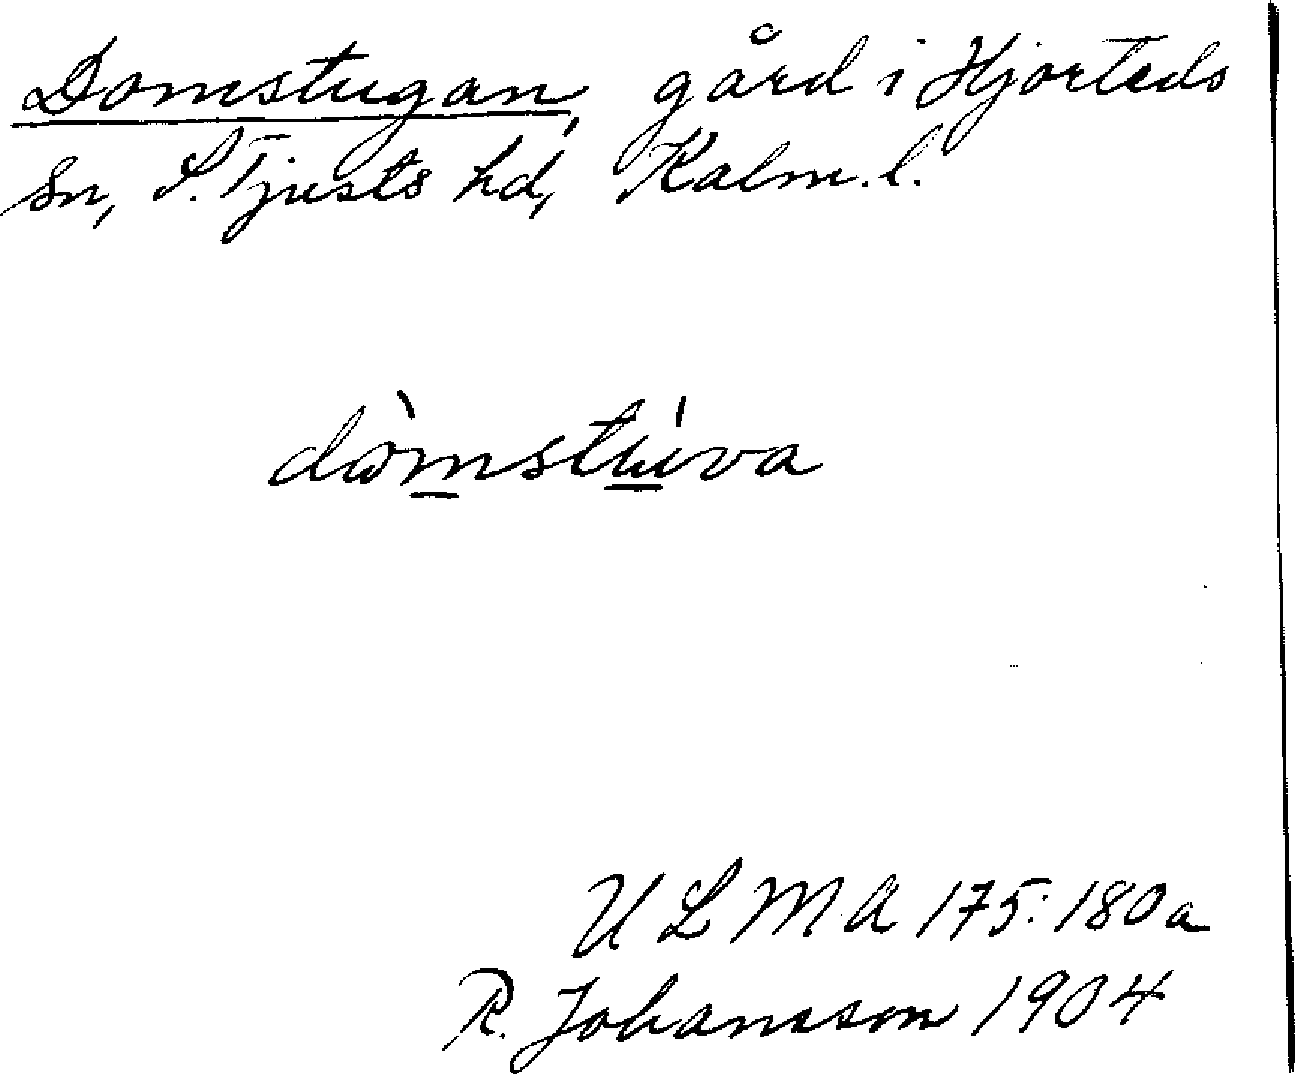 Domstugan, gård i Hjorteds
sn, S. Tjusts hd, Kalm. l.
dɷ̀mstúva
ULMA 175:180a
R. Johansson 1904